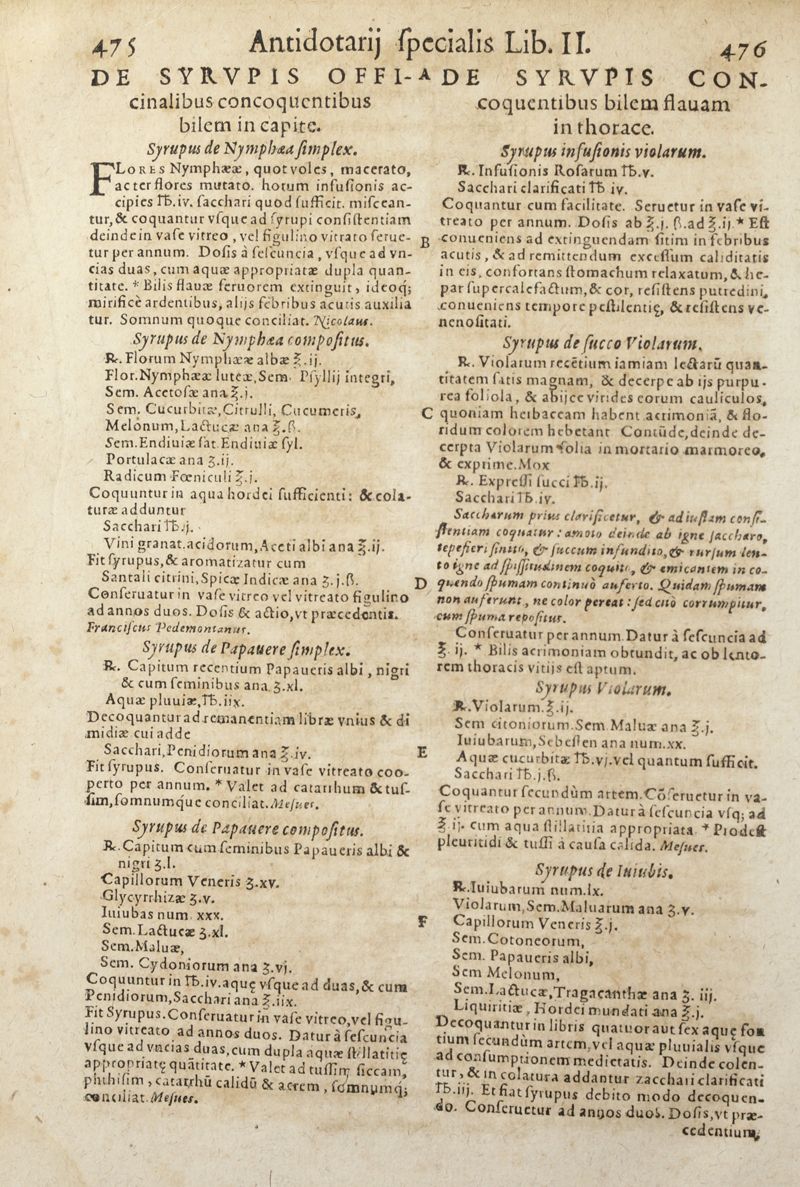 475 Antidotarij specialis Lib. II. 476
DE SYRVPIS OFFI-
cinalibus concoquentibus
bilem in capite.
Syrupus de Nymphæa simplex.
FLORES Nymphææ, quot voles, macerato,
ac ter flores mutato. horum infusionis ac-
cipies ℔.iv. sacchari quod sufficit. miscean-
tur, & coquantur vsque ad syrupi consistentiam
deinde in vase vitreo, vel figulino vitrato serue-
tur per annum. Dosis à sescuncia, vsque ad vn-
cias duas, cum aquæ appropriatæ dupla quan-
titate. * Bilis flauæ feruorem extinguit, ideoq;
mirificè ardentibus, alijs febribus acutis auxilia
tur. Somnum quoque conciliat. Nicolaus.
Syrupus de Nymphæa compositus.
℞. Florum Nymphææ albæ ℥.ij.
Flor.Nymphææ luteæ,Sem. Psyllij integri,
Sem. Acetosæ ana ℥.j.
Sem. Cucurbitæ,Citrulli, Cucumeris,
Melonum,Lactucæ ana ℥.ß.
Sem.Endiuiæ sat.Endiuiæ syl.
Portulacæ ana ʒ.ij.
Radicum Fœniculi ℥.j.
Coquuntur in aqua hordei sufficienti: & cola-
turæ adduntur
Sacchari ℔.j.
Vini granat.acidorum,Aceti albi ana ℥.ij.
Fit syrupus,& aromatizatur cum
Santali citrini,Spicæ Indicæ ana ʒ.j.ß.
Conseruatur in vase vitreo vel vitreato figulino
ad annos duos. Dosis & actio,vt præcedentis.
Franciscus Pedemontanus.
Syrupus de Papauere simplex.
℞. Capitum recentium Papaueris albi, nigri
& cum seminibus ana ʒ.xl.
Aquæ pluuiæ,℔.iix.
Decoquantur ad remanentiam libræ vnius & di
midiæ cui adde
Sacchari,Penidiorum ana ℥.iv.
Fit syrupus. Conseruatur in vase vitreato coo-
perto per annum. * Valet ad catarrhum & tus-
sim,somnumque conciliat.Mesues.
Syrupus de Papauere compositus.
℞.Capitum cum seminibus Papaueris albi &
nigri ʒ.l.
Capillorum Veneris ʒ.xv.
Glycyrrhizæ ʒ.v.
Iuiubas num. xxx.
Sem.Lactucæ ʒ.xl.
Sem.Maluæ,
Sem. Cydoniorum ana ʒ.vj.
Coquuntur in ℔.iv.aquę vsque ad duas,& cum
Penidiorum,Sacchari ana ℥.iix.
Fit Syrupus.Conseruatur in vase vitreo,vel figu-
lino vitreato ad annos duos. Datur à sescuncia
vsque ad vncias duas,cum dupla aquæ stillatitię
appropriatę quātitate. * Valet ad tussim siccam,
phthisim, catarrhū calidū & acrem, somnumq;
conciliat.Mesues.
A DE SYRVPIS CON-
coquentibus bilem flauam
in thorace.
Syrupus infusionis violarum.
℞. Infusionis Rosarum ℔.v.
Sacchari clarificati ℔ iv.
Coquantur cum facilitate. Seruetur in vase vi-
treato per annum. Dosis ab ℥.j. ß.ad ℥.ij.* Est
B conueniens ad extinguendam sitim in febribus
acutis, & ad remittendum excessum caliditatis
in eis, confortans stomachum relaxatum,& he-
par supercalefactum,& cor, resistens putredini,
conueniens tempore pestilentię, & resistens ve-
nenositati.
Syrupus de succo Violarum.
℞. Violarum recētium iamiam lectarū quan-
titatem satis magnam, & decerpe ab ijs purpu-
rea foliola, & abijce virides eorum cauliculos,
C quoniam herbaceam habent acrimoniā, & flo-
ridum colorem hebetant Contūde,deinde de-
cerpta Violarum folia in mortario marmoreo,
& exprime.Mox
℞. Expressi succi ℔.ij.
Sacchari ℔.iv.
Saccharum prius clarificetur, & ad iustam consi-
stentiam coquatur: amoto deinde ab igne saccharo,
tepefieri sinito, & succum infundito,& rursum len-
to igne ad spissitudinem coquito, & emicantem in co-
D quendo spumam continuò auferto. Quidam spumam
non auferunt, ne color pereat: sed citò corrumpitur,
cum spuma repositus.
Conseruatur per annum. Datur à sescuncia ad
℥. ij. * Bilis acrimoniam obtundit, ac ob lento-
rem thoracis vitijs est aptum.
Syrupus Violarum.
℞.Violarum.℥.ij.
Sem citoniorum.Sem Maluæ ana ℥.j.
Iuiubarum,Sebesten ana num.xx.
E Aquæ cucurbitæ ℔.vj.vel quantum sufficit.
Sacchari ℔.j.ß.
Coquantur secundùm artem.Cōseruetur in va-
se vitreato per annum.Datur à sescuncia vsq; ad
℥.ij. cum aqua stillatitia appropriata * Prodest
pleuritidi & tussi à causa calida. Mesues.
Syrupus de Iuiubis.
℞.Iuiubarum num.lx.
Violarum,Sem.Maluarum ana ʒ.v.
F Capillorum Veneris ℥.j.
Sem.Cotoneorum,
Sem. Papaueris albi,
Sem Melonum,
Sem.Lactucæ,Tragacanthæ ana ʒ. iij.
Liquiritiæ, Hordei mundati ana ℥.j.
Decoquantur in libris quatuor aut sex aquę fon
tium secundum artem,vel aquæ pluuialis vsque
ad consumptionem medietatis. Deinde colen-
tur, & in colatura addantur zacchari clarificati
℔.iij. Et fiat syrupus debito modo decoquen-
do. Conseruetur ad annos duos. Dosis,vt præ-
cedentium,